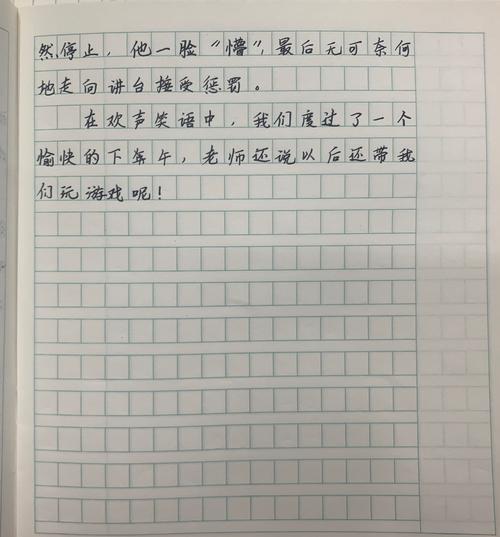 然停止，他一脸“懵”，最后无可奈何
地走向讲台接受惩罚。
在欢声笑语中，我们度过了一个
愉快的下午，老师还说以后还带我
们玩游戏呢！